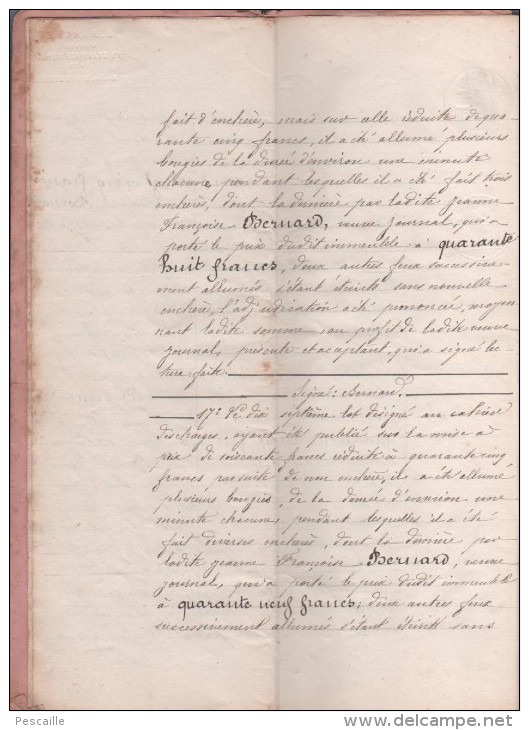 fait d'enchère, mais sur celle réduite de qua-
rante cinq francs, il a été allumé plusieurs
bougies de la durée d'environ une minute
chacune, pendant lesquelles il a été fait trois
enchères, dont la dernière par ladite Jeanne
Françoise Bernard, veuve Journal, qui a
porté le prix dudit immeuble à quarante
huit francs, deux autres feux successive-
ment allumés s'étant éteints sans nouvelle
enchère, l'adjudication a été prononcée, moyen
nant ladite somme, au profit de ladite veuve
Journal, présente et acceptant, qui a signé lec
ture faite.
Signé: Bernard.
17° Le dix septième lot désigné au cahier
des charges, ayant été publié sur la mise à
prix de soixante francs réduite à quarante cinq
francs par suite de non enchère, il a été allumé
plusieurs bougies, de la durée d'environ une
minute chacune, pendant lesquelles il a été
fait diverses enchères, dont la dernière par
ladite Jeanne Françoise Bernard, veuve
Journal, qui a porté le prix dudit immeuble
à quarante neuf francs; deux autres feux
successivement allumés s'étant éteints sans
Pescaille
www.delcampe.net